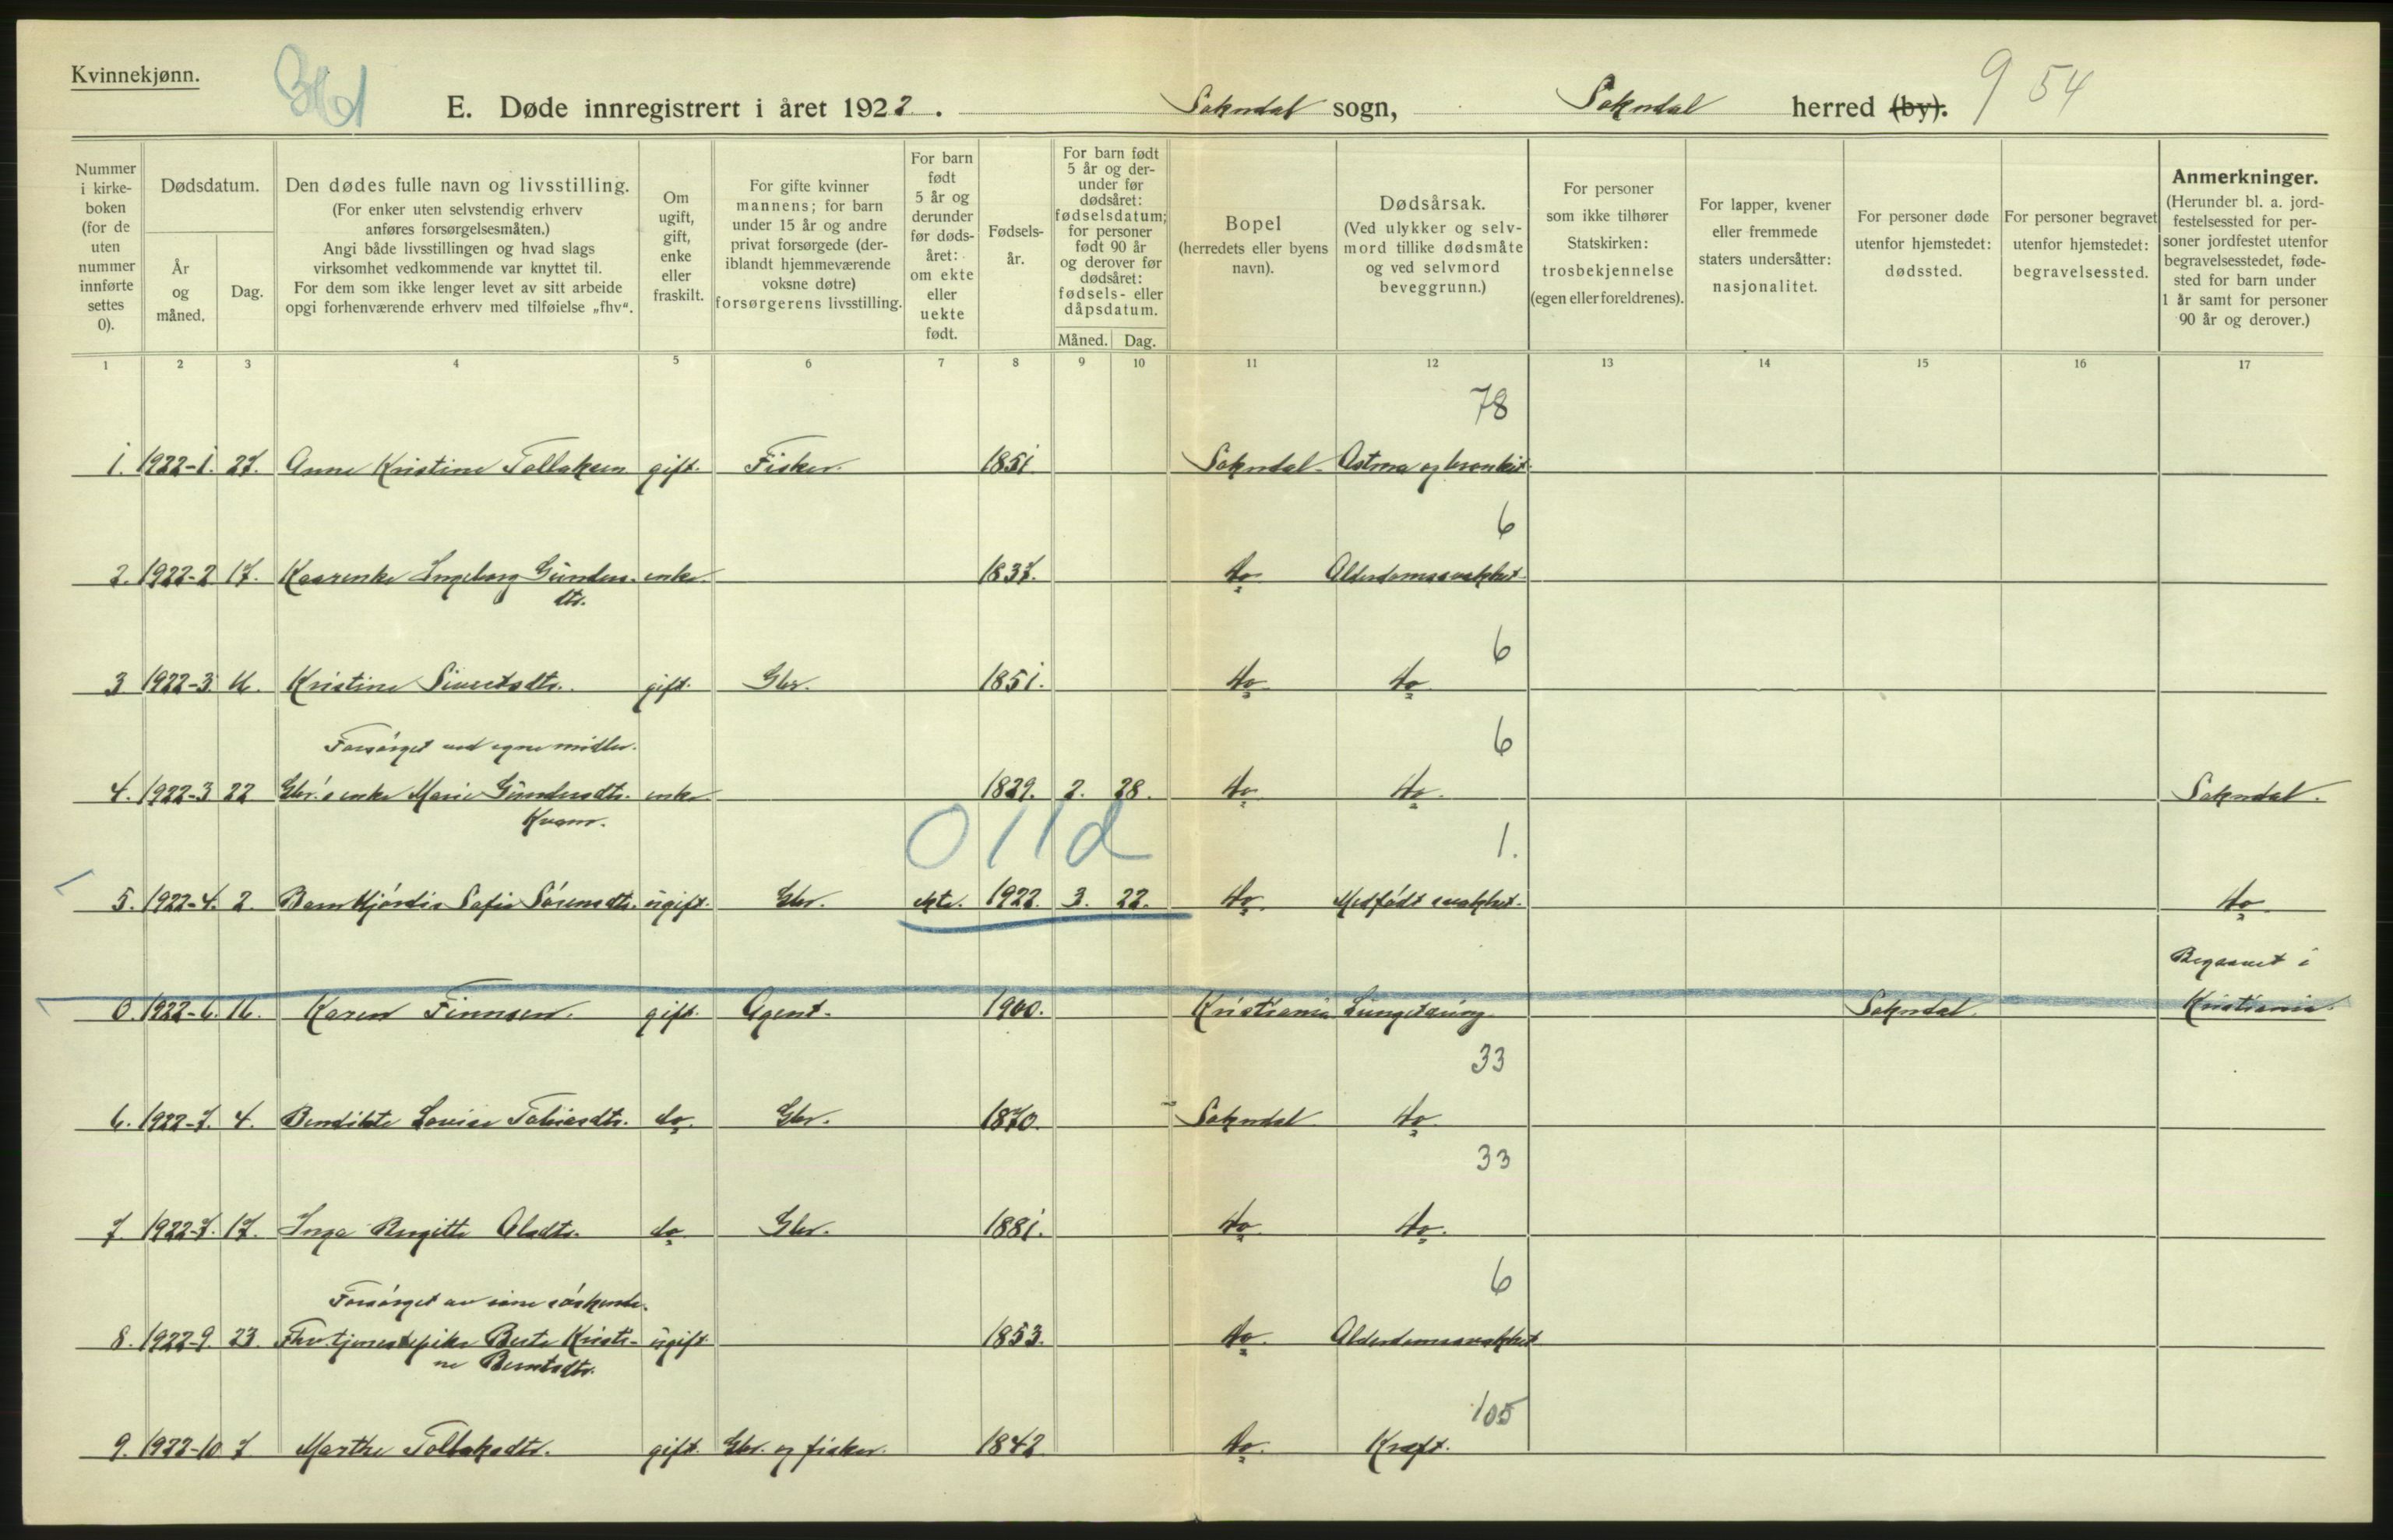 Kvinnekjønn.
E. Døde innregistrert i året 1922. Sokndal sogn, Sokndal herred (by). 9 54
Nummer i kirke- boken (for de uten nummer innførte settes 0).
Dødsdatum.
År og måned.
Dag.
Den dødes fulle navn og livsstilling.
(For enker uten selvstendig erhverv
anføres forsørgelsesmåten.)
Angi både livsstillingen og hvad slags
virksomhet vedkommende var knyttet til.
For dem som ikke lenger levet av sitt arbeide
opgi forhenværende erhverv med tilføielse „fhv“.
Om ugift, gift, enke eller fraskilt.
For gifte kvinner
mannens; for barn
under 15 år og andre
privat forsørgede (der-
iblandt hjemmeværende
voksne døtre)
forsørgerens livsstilling.
For barn født 5 år og derunder før døds- året: om ekte eller uekte født.
Fødsels- år.
For barn født
5 år og der-
under før
dødsåret:
fødselsdatum;
for personer
født 90 år
og derover før
dødsåret:
fødsels- eller
dåpsdatum.
Måned. Dag.
Bopel
(herredets eller byens
navn).
Dødsårsak.
(Ved ulykker og selv-
mord tillike dødsmåte
og ved selvmord
beveggrunn.)
For personer
som ikke tilhører
Statskirken:
trosbekjennelse
(egen eller foreldrenes).
For lapper, kvener
eller fremmede
staters undersåtter:
nasjonalitet.
For personer døde
utenfor hjemstedet:
dødssted.
For personer begravet
utenfor hjemstedet:
begravelsessted.
Anmerkninger.
(Herunder bl. a. jord-
festelsessted for per-
soner jordfestet utenfor
begravelsesstedet, føde-
sted for barn under
1 år samt for personer
90 år og derover.)
1 2 3 4 5 6 7 8 9 10 11 12 13 14 15 16 17
78
1. 1922-1. 27. Anne Kristine Tollaksen gift. Fisker. 1851 Sokndal. Astma og bronkit.
6
2. 1922-2 17. Kaarenke Ingeborg Gunders- enke. 1837. do Alderdomssvakhet.
dtr.
6
3 1922-3. Kristine Sivertsdtr. gift. Gbr. 1851. do do
Forsørget ved egne midler. 6
4. 1922-3 22 Gbr.'s enke Marie Gundersdtr. enke. 1829. 2. 28. do do. Sokndal.
Kvam.
0 11 d 1.
5. 1922-4. 2. Barn Hjørdis Sofie Sørensdtr. ugift. Gbr. ekte. 1922. 3. 22. do. Medfødt svakhet. do
Begravet i
0. 1922-6. 16. Karen Finnsen. gift. Agent. 1900. Kristiania Lungetæring Sokndal. Kristiania.
33
6. 1922-7. 4. Bendikte Lovise Tobiasdtr. do. Gbr. 1870. Sokndal do
33
7 1922-7. 17. Inga Birgitte Olsdtr. do Gbr. 1881. do do.
Forsørget av sine søskende. 6
8. 1922-9. 23. Fhv. tjenestepike Berte Kristi- ugift 1853. do. Alderdomssvakhet
ne Berntsdtr.
105
9. 1922-10. 7 Marthe Tollaksdtr. gift. Gbr. og fisker. 1842 do. Kræft.